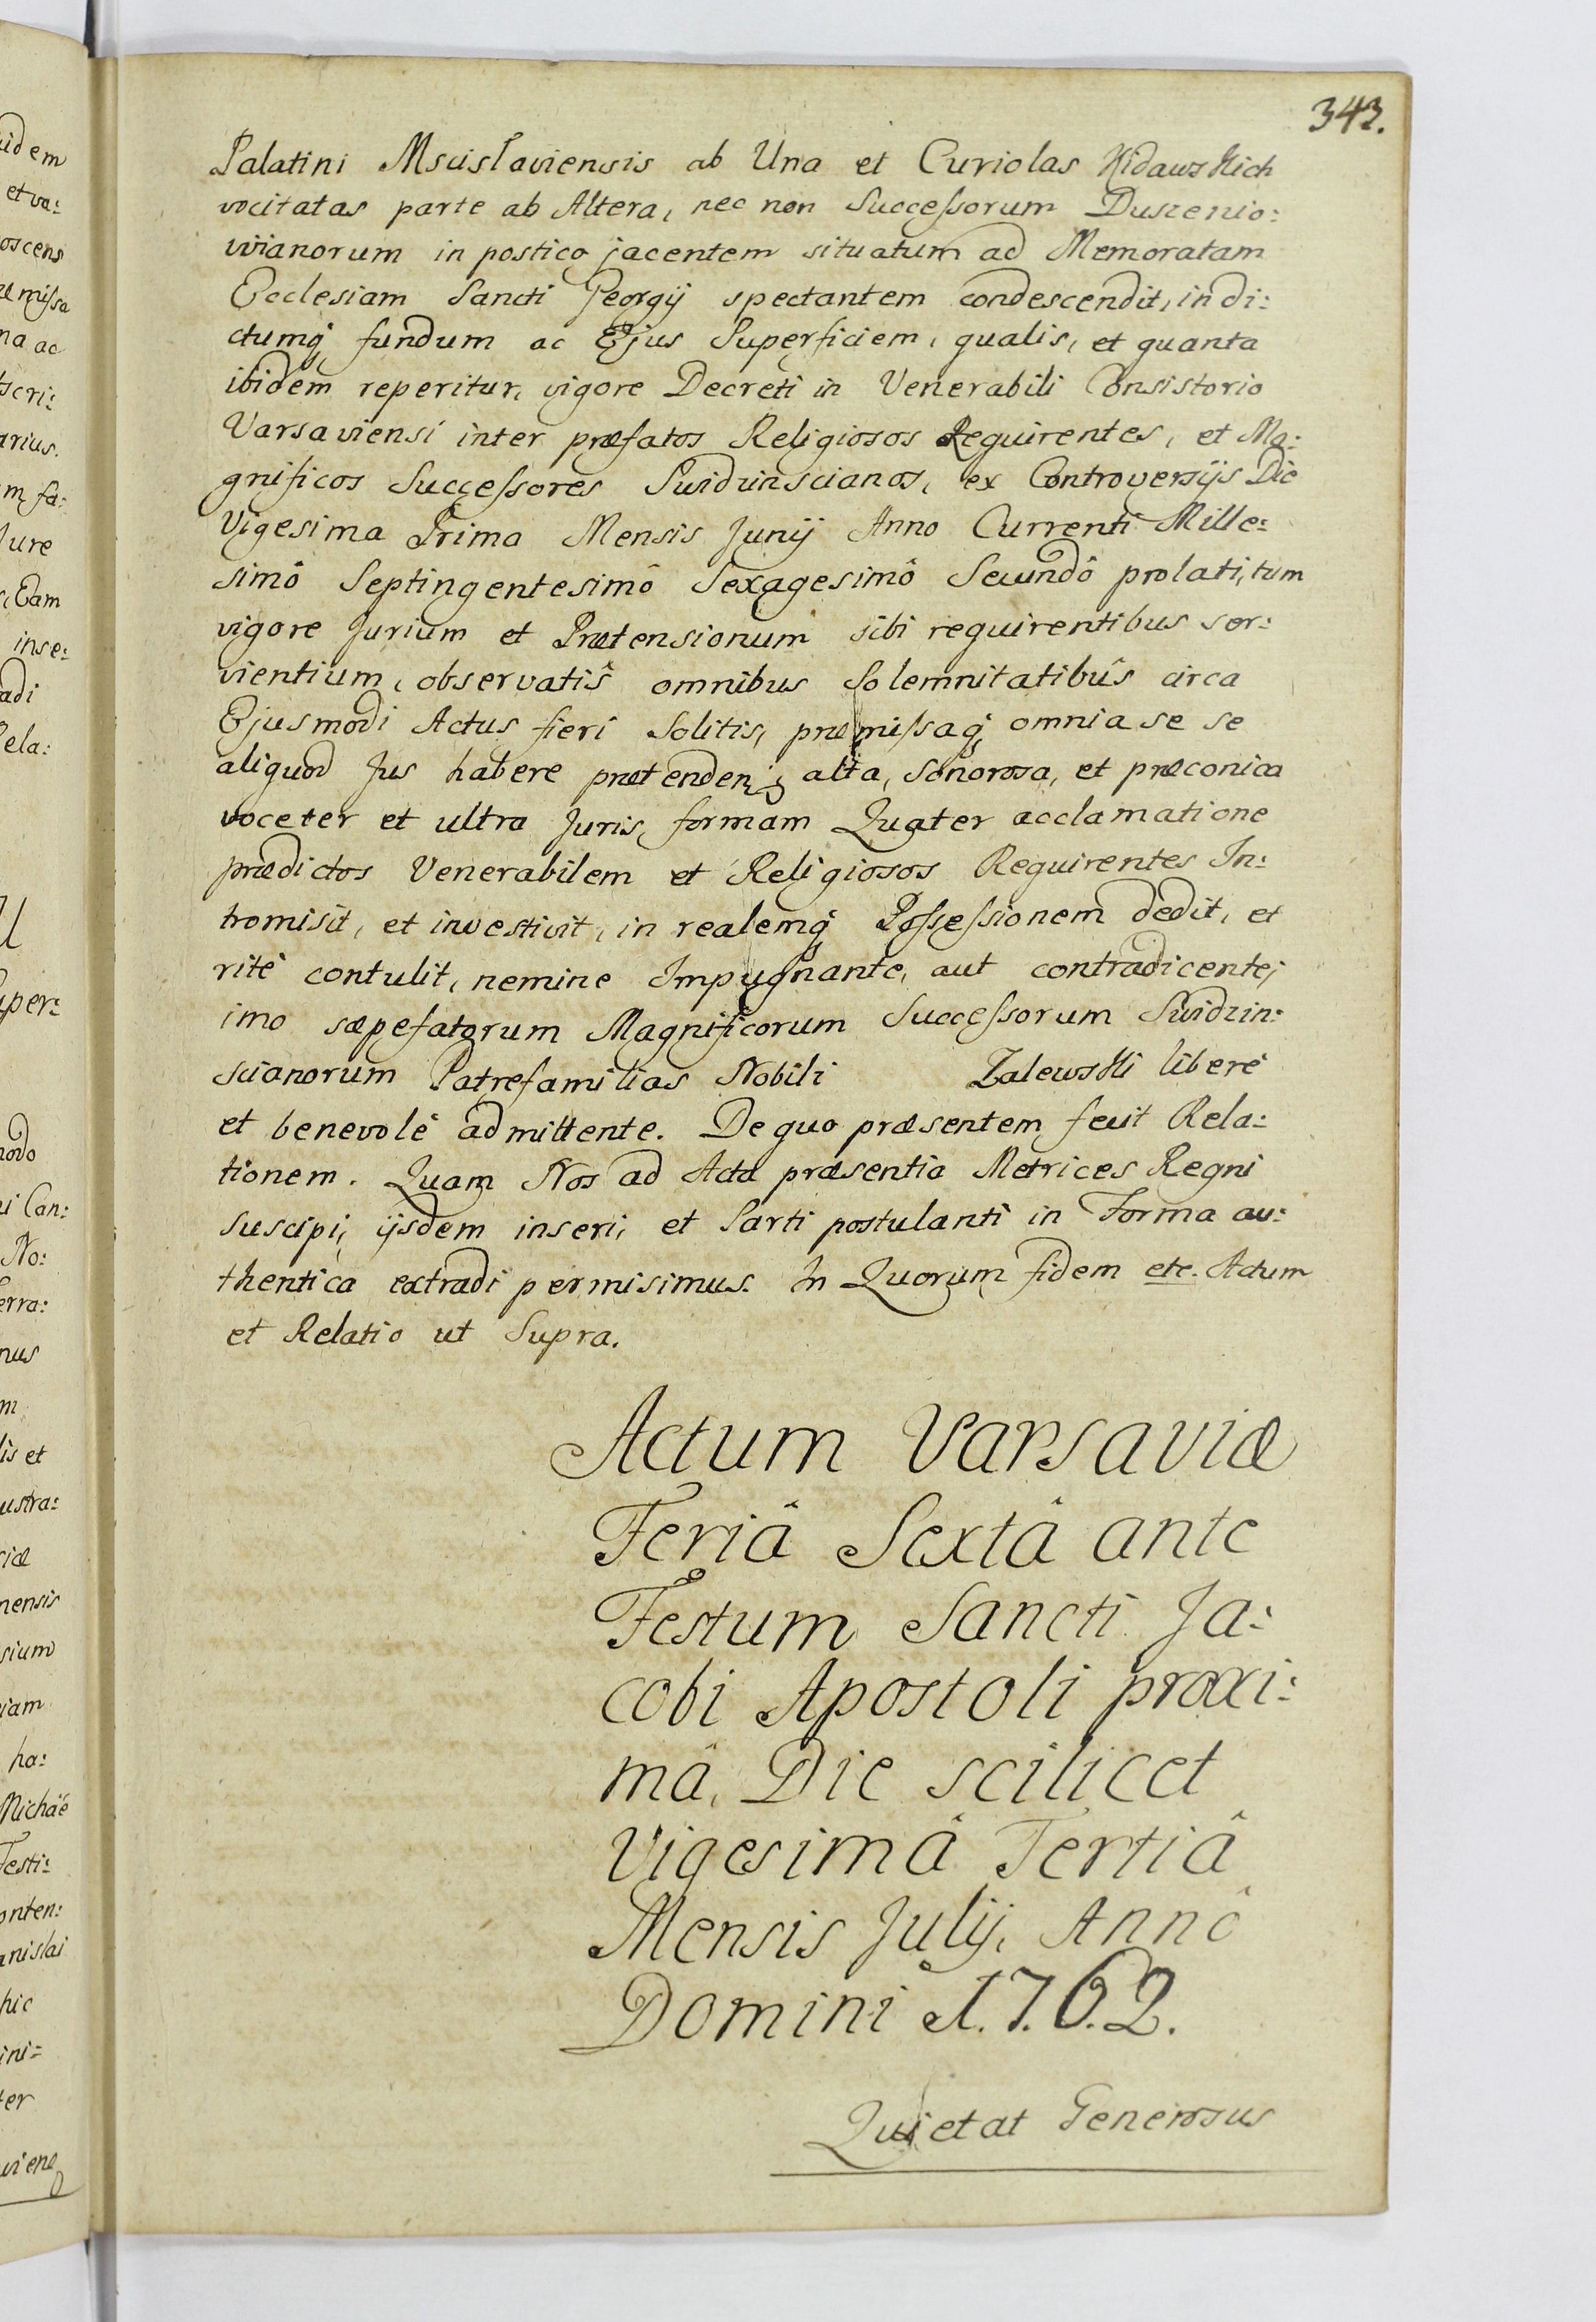 343.
Palatini Mscislaviensis ab Una et Curiolas Kidawskich
vocitatas parte ab Altera, nec non Successorum Duszenio:
wianorum in postico jacentem situatum ad Memoratam
Ecclesiam Sancti Georgij spectantem condescendit, in di:
ctumq fundum ac Ejus Superficiem, qualis, et quanta
ibidem reperitur, vigore Decreti in Venerabili Consistorio
Varsaviensi inter præfatos Religiosos Requirentes, et Ma:
gnificos Successores Suidzinscianos, ex Controversijs Die
Vigesima Prima Mensis Junij Anno Currenti Mille:
simô Septingentesimô Sexagesimô Secundô prolati, tum
vigore Jurium et Prætensionum sibi requirentibus ser:
vientium, observatîs omnibus Solemnitatibûs circa
Ejusmodi Actus fieri Solitis, præmissaq omnia se se
aliquod Jus habere prætenden: alta, Sonorosa, et præconica
voce ter et ultra Juris formam Quater acclamatione
prædictos Venerabilem et Religiosos Requirentes In:
tromisit, et investivit, in realemq Possessionem dedit, et
ritè contulit, nemine Impugnante, aut contradicente,
imo sæpefatorum Magnificorum Successorum Suidzin:
scianorum Patrefamilias Nobili Zalewski liberè
et benevolè admittente. De quo præsentem fecit Rela:
tionem. Quam Nos ad Acta præsentia Metrices Regni
suscipi, ijsdem inseri, et Parti postulanti in Forma au:
thentica extradi permisimus. In Quorum fidem etc. Actum
et Relatio ut Supra.
Actum Varsaviæ
Feriâ Sextâ ante
Festum Sancti Ja:
cobi Apostoli proxi:
mâ, Die scilicet
Vigesimâ Tertiâ
Mensis Julij, Annô
Domini 1.7.6.2.
Quietat Generosus